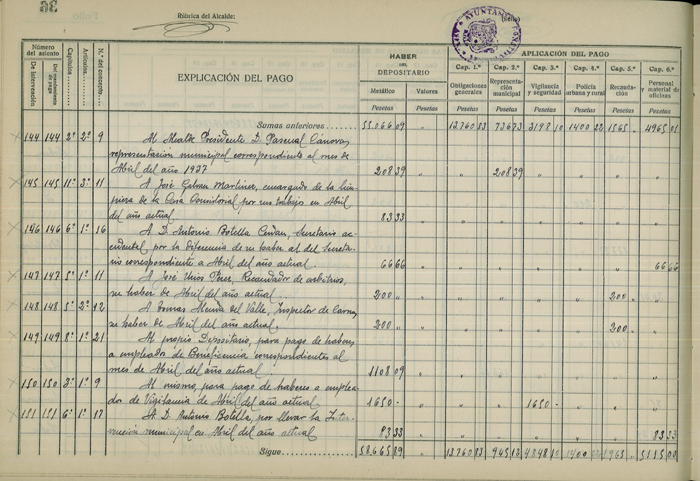 36
Folio
Rúbrica del Alcalde:
(Sello)
AYUNTAMIENTO
Número del asiento
De Intervención
Del mandamiento de pago
Capítulos
Artículos
N.º del concepto
EXPLICACIÓN DEL PAGO
HABER DEL DEPOSITARIO
Metálico
Pesetas
Valores
Pesetas
APLICACIÓN DEL PAGO
Cap. 1.º
Obligaciones generales
Pesetas
Cap. 2.º
Representación municipal
Pesetas
Cap. 3.º
Vigilancia y seguridad
Pesetas
Cap. 4.º
Policía urbana y rural
Pesetas
Cap. 5.º
Recaudación
Pesetas
Cap. 6.º
Personal y material de oficinas
Pesetas
Sumas anteriores 55.066 09 " 13760 83 736 73 3198 10 1400 22 1565 " 4965 01
144 144 2º 2º 9 Al Alcalde Presidente D. Pascual Cánovas,
representación municipal correspondiente al mes de
Abril del año 1937 208 39 " " 208 39 " " " "
145 145 11º 3º 11 A José Martínez, encargado de la lim
pieza de la Casa Consistorial por sus trabajos en Abril
del año actual 83 33 " " " " " " "
146 146 6º 1º 16 A D. Antonio Botella, Secretario ac
cidental por la diferencia de su haber al del Secreta
rio correspondiente a Abril del año actual 66 66 " " " " " " 66 66
147 147 5º 1º 11 A José Pérez, Recaudador de arbitrios,
su haber de Abril del año actual 200 " " " " " " 200 " "
148 148 5º 2º 12 A Tomás del Valle, Inspector de Carnes,
su haber de Abril del año actual. 200 " " " " " " 200 " "
149 149 8º 1º 21 Al propio Depositario, para pago de haberes
a empleados de Beneficencia correspondientes al
mes de Abril del año actual 1108 09 " " " " " " "
150 150 3º 1º 9 Al mismo, para pago de haberes a emplea
dos de Vigilancia de Abril del año actual 1650 - " " " 1650 - " " "
151 151 6º 1º 17 A D. Antonio Botella, por llevar la Inter
vención municipal en Abril del año actual 83 33 " " " " " " 83 33
Sigue 58.665 89 " 13760 83 945 12 4848 10 1400 22 1965 " 5115 00